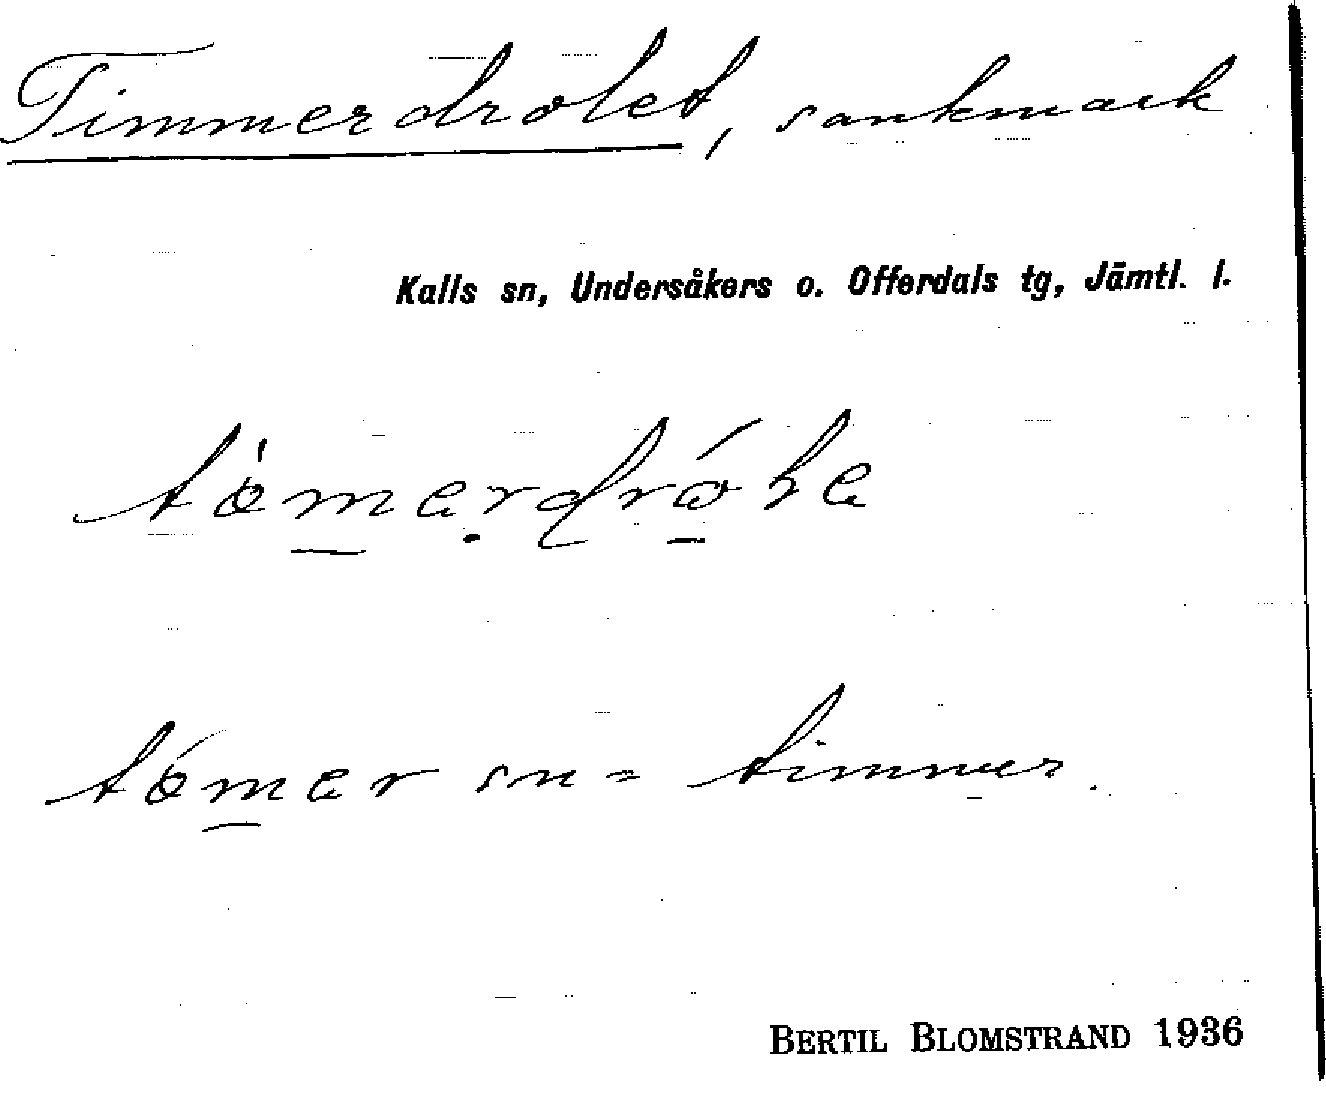 Timmerdrolet, sankmark
Kalls sn, Undersåkers o. Offerdals tg, Jämtl. l.
tömer sn = timmer.
BERTIL BLOMSTRAND 1936